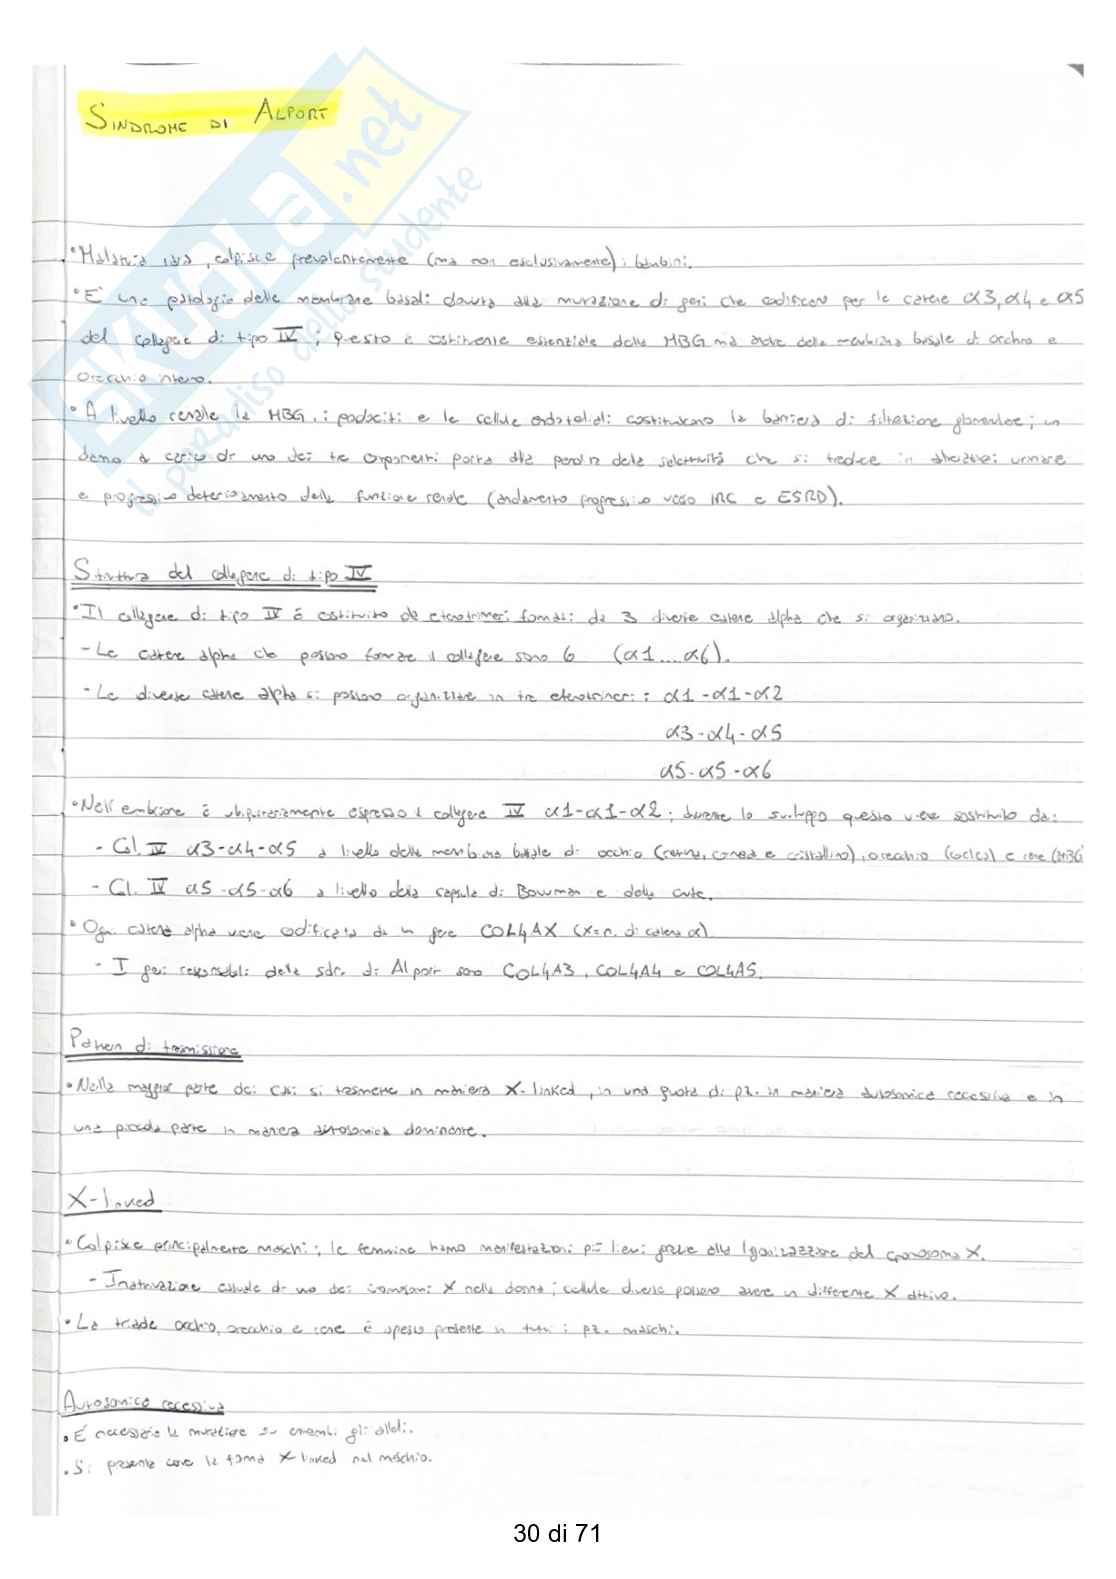 SINDROME DI ALPORT
SKUOLA.net
il paradiso dello studente
• Malattia rara, colpisce prevalentemente (ma non esclusivamente) i bambini.
• E' una patologia delle membrane basali dovuta alla mutazione di geni che codificano per le catene α3, α4 e α5
del collagene di tipo IV; questo è costituente essenziale della MBG ma anche della membrana basale di occhio e
orecchio interno.
• A livello renale la MBG, i podociti e le cellule endoteliali costituiscono la barriera di filtrazione glomerulare; un
danno a carico di uno dei tre componenti porta alla perdita della selettività che si traduce in alterazioni urinarie
e progressivo deterioramento della funzione renale (andamento progressivo verso IRC e ESRD).
Struttura del collagene di tipo IV
• Il collagene di tipo IV è costituito da eterotrimeri formati da 3 diverse catene alpha che si organizzano.
- Le catene alpha che possono formare il collagene sono 6 (α1...α6).
- Le diverse catene alpha si possono organizzare in tre eterotrimeri: α1-α1-α2
α3-α4-α5
α5-α5-α6
• Nell'embrione è ubiquitariamente espresso il collagene IV α1-α1-α2; durante lo sviluppo questo viene sostituito da:
- Col. IV α3-α4-α5 a livello delle membrana basale di occhio (retina, cornea e cristallino), orecchio (coclea) e rene (MBG
- Col. IV α5-α5-α6 a livello della capsula di Bowman e della cute.
• Ogni catena alpha viene codificata da un gene COL4AX (X=n. di catena α)
- I geni responsabili della sdr. di Alport sono COL4A3, COL4A4 e COL4A5.
Pattern di trasmissione
• Nella maggior parte dei casi si trasmette in maniera X-linked, in una quota di pz. in maniera autosomica recessiva e in
una piccola parte in maniera autosomica dominante.
X-linked
• Colpisce principalmente maschi; le femmine hanno manifestazioni più lievi grazie alla lyonizzazione del cromosoma X.
- Inattivazione casuale di uno dei cromosomi X nella donna; cellule diverse possono avere un differente X attivo.
• La triade occhio, orecchio e rene è spesso presente in tutti i pz. maschi.
Autosomica recessiva
• È necessaria la mutazione su entrambi gli alleli.
• Si presenta come la forma X-linked nel maschio.
30 di 71